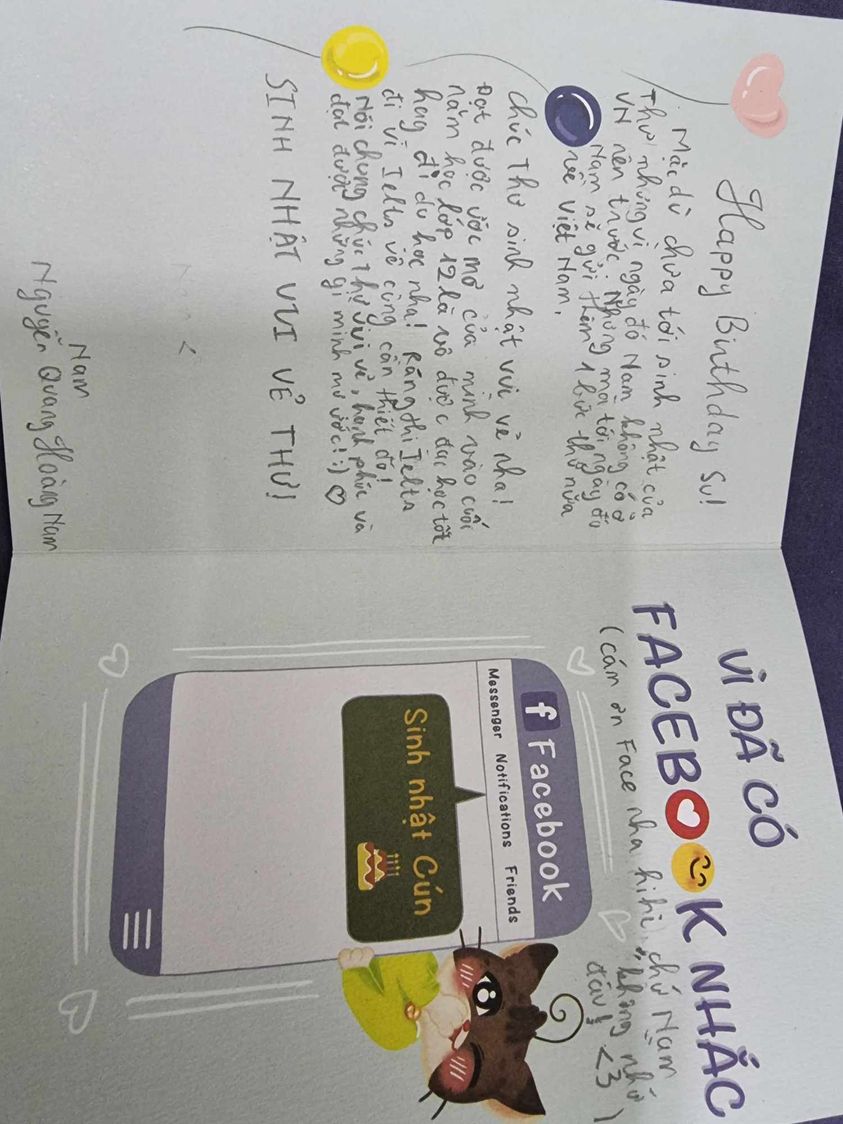 Happy Birthday Su!
Mặc dù chưa tới sinh nhật của
Thư nhưng vì ngày đó Nam không có ở
VN nên trước. Nhưng mai tới ngày đó
Nam sẽ gửi thêm 1 bức thư nữa
về Việt Nam.
Chúc Thư sinh nhật vui vẻ nha!
Đạt được ước mơ của mình vào cuối
năm học lớp 12 là vô được đại học tốt
hay đi du học nha! Ráng thi Ielts
đi vì Ielts vô cùng cần thiết đó!
Nói chung chúc Thư vui vẻ, hạnh phúc và
đạt được những gì mình mơ ước! :) ♡
SINH NHẬT VUI VẺ THƯ!
Nam
Nguyễn Quang Hoàng Nam
VÌ ĐÃ CÓ
FACEBOOK NHẮC
(cám ơn Face nha hihi, chứ Nam
không nhớ
đâu! <3)
f Facebook
Messenger Notifications Friends
Sinh nhật Cún